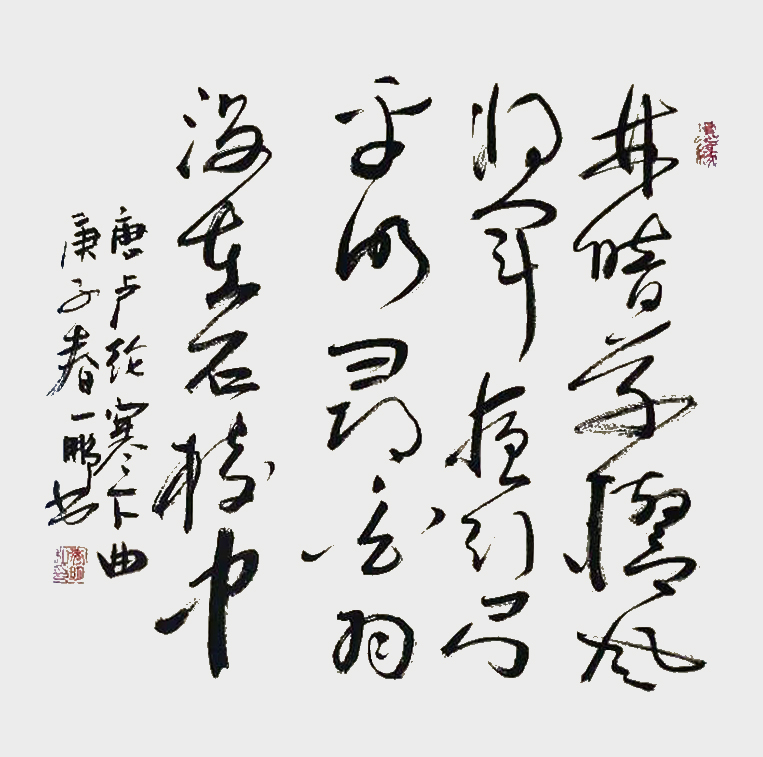 林暗草惊风
将军夜引弓
平明寻白羽
没在石棱中
唐卢纶塞下曲
庚子春一鹏书